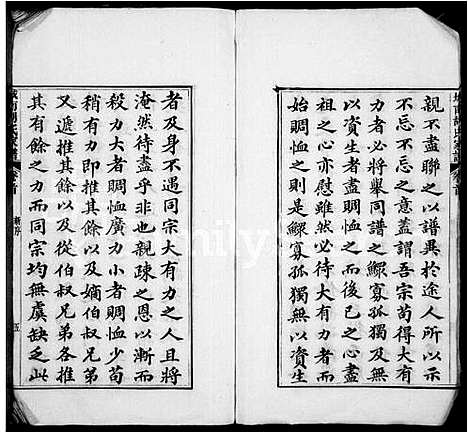 親不盡聯之以譜異於途人所以示
不忘不忘之意蓋謂吾宗苟得大有
力者必將舉同譜之鰥寡孤獨及無
以資生者盡賙恤之而後已之心盡
祖之心亦慰雖然必待大有力者而
始賙恤之則是鰥寡孤獨無以資生
者及身不遇同宗大有力之人且將
淹然待盡乎非也親疎之恩以漸而
殺力大者賙恤廣力小者賙恤少苟
稍有力即推其餘以及嫡伯叔兄弟
又遞推其餘以及從伯叔兄弟各推
其有餘之力而同宗均無虞缺乏此
新序
五